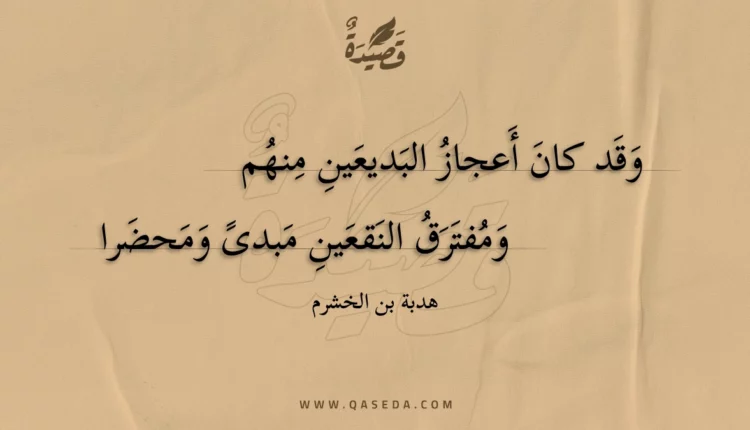 قَصِيْدَةٌ
وَقَد كانَ أَعجازُ البَديعَينِ مِنهُم
وَمُفتَرَقُ النَقعَينِ مَبدىً وَمَحضَرا
هدبة بن الخشرم
WWW.QASEDA.COM